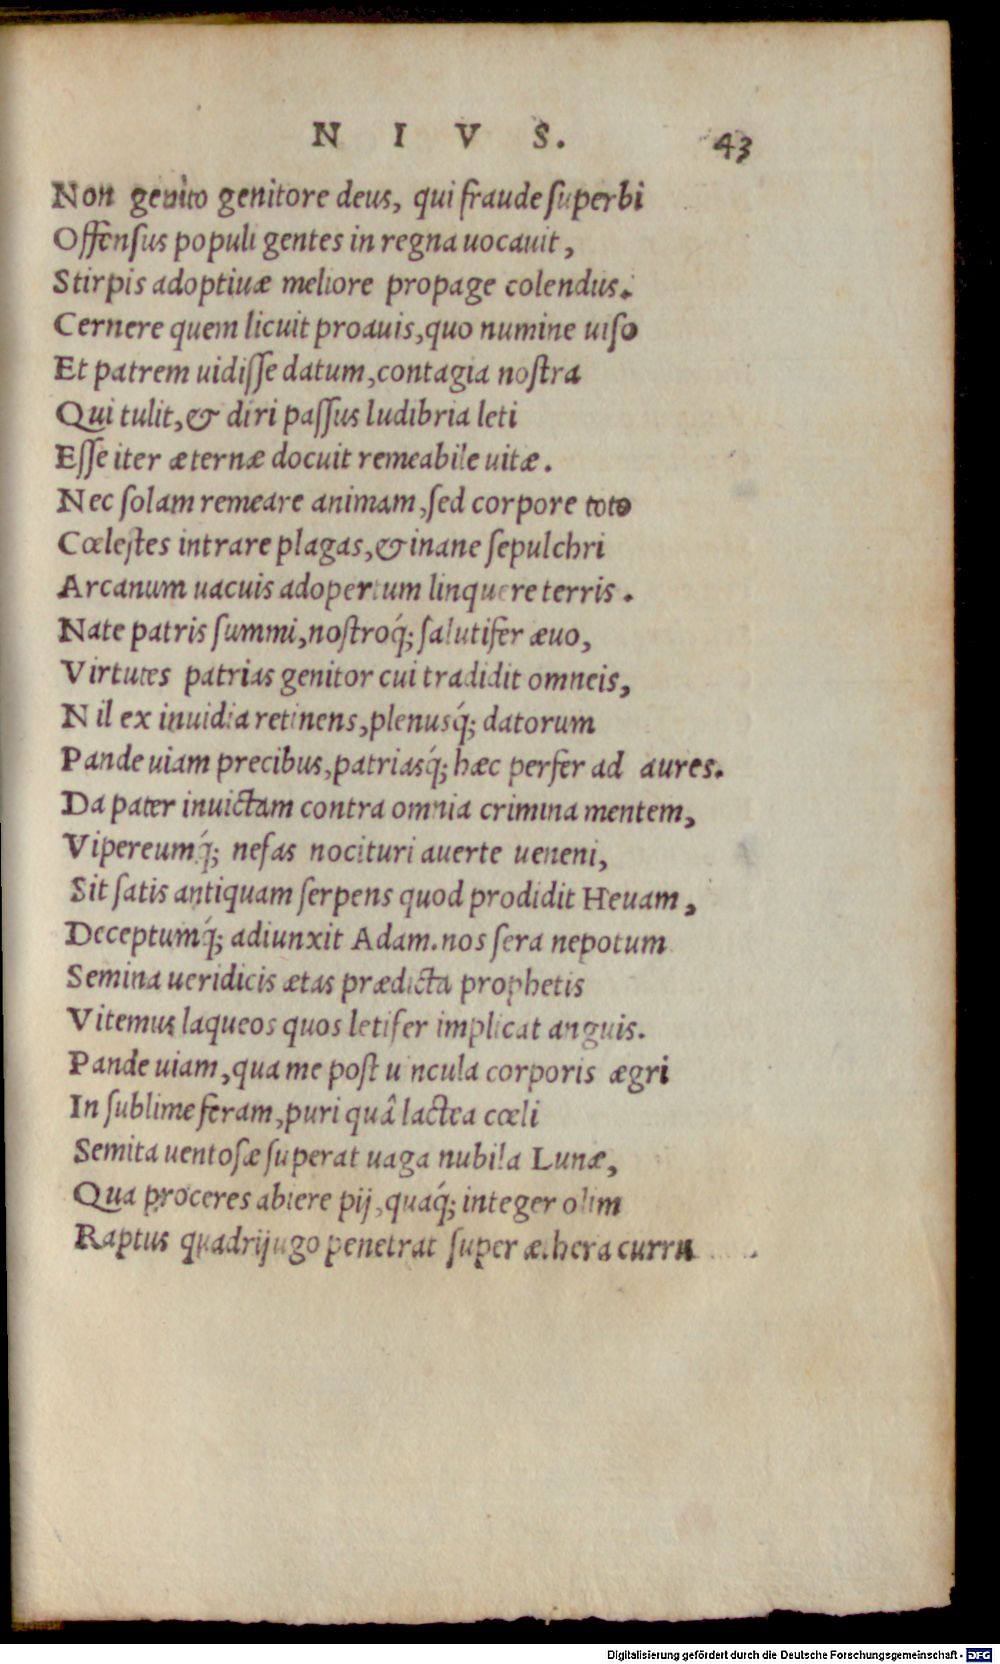 N I V S. 43
Non genito genitore deus, qui fraude ſuperbi
Offenſus populi gentes in regna uocauit,
Stirpis adoptiuæ meliore propage colendus.
Cernere quem licuit proauis, quo numine uiſo
Et patrem uidiſſe datum, contagia noſtra
Qui tulit, & diri paſſus ludibria leti
Eſſe iter æternæ docuit remeabile uitæ.
Nec ſolam remeare animam, ſed corpore toto
Cœleſtes intrare plagas, & inane ſepulchri
Arcanum uacuis adopertum linquere terris.
Nate patris ſummi, noſtroq́; ſalutifer æuo,
Virtutes patrias genitor cui tradidit omneis,
Nil ex inuidia retinens, plenusq́; datorum
Pande uiam precibus, patriasq́; hæc perfer ad aures.
Da pater inuictam contra omnia crimina mentem,
Vipereumq́; nefas nocituri auerte ueneni,
Sit ſatis antiquam ſerpens quod prodidit Heuam,
Deceptumq́; adiunxit Adam. nos ſera nepotum
Semina ueridicis ætas prædicta prophetis
Vitemus laqueos quos letifer implicat anguis.
Pande uiam, qua me poſt uincula corporis ægri
In ſublime feram, puri quâ lactea cœli
Semita uentoſæ ſuperat uaga nubila Lunæ,
Qua proceres abiere pij, quaq́; integer olim
Raptus quadrijugo penetrat ſuper æthera curru
Digitalisierung gefördert durch die Deutsche Forschungsgemeinschaft - DFG